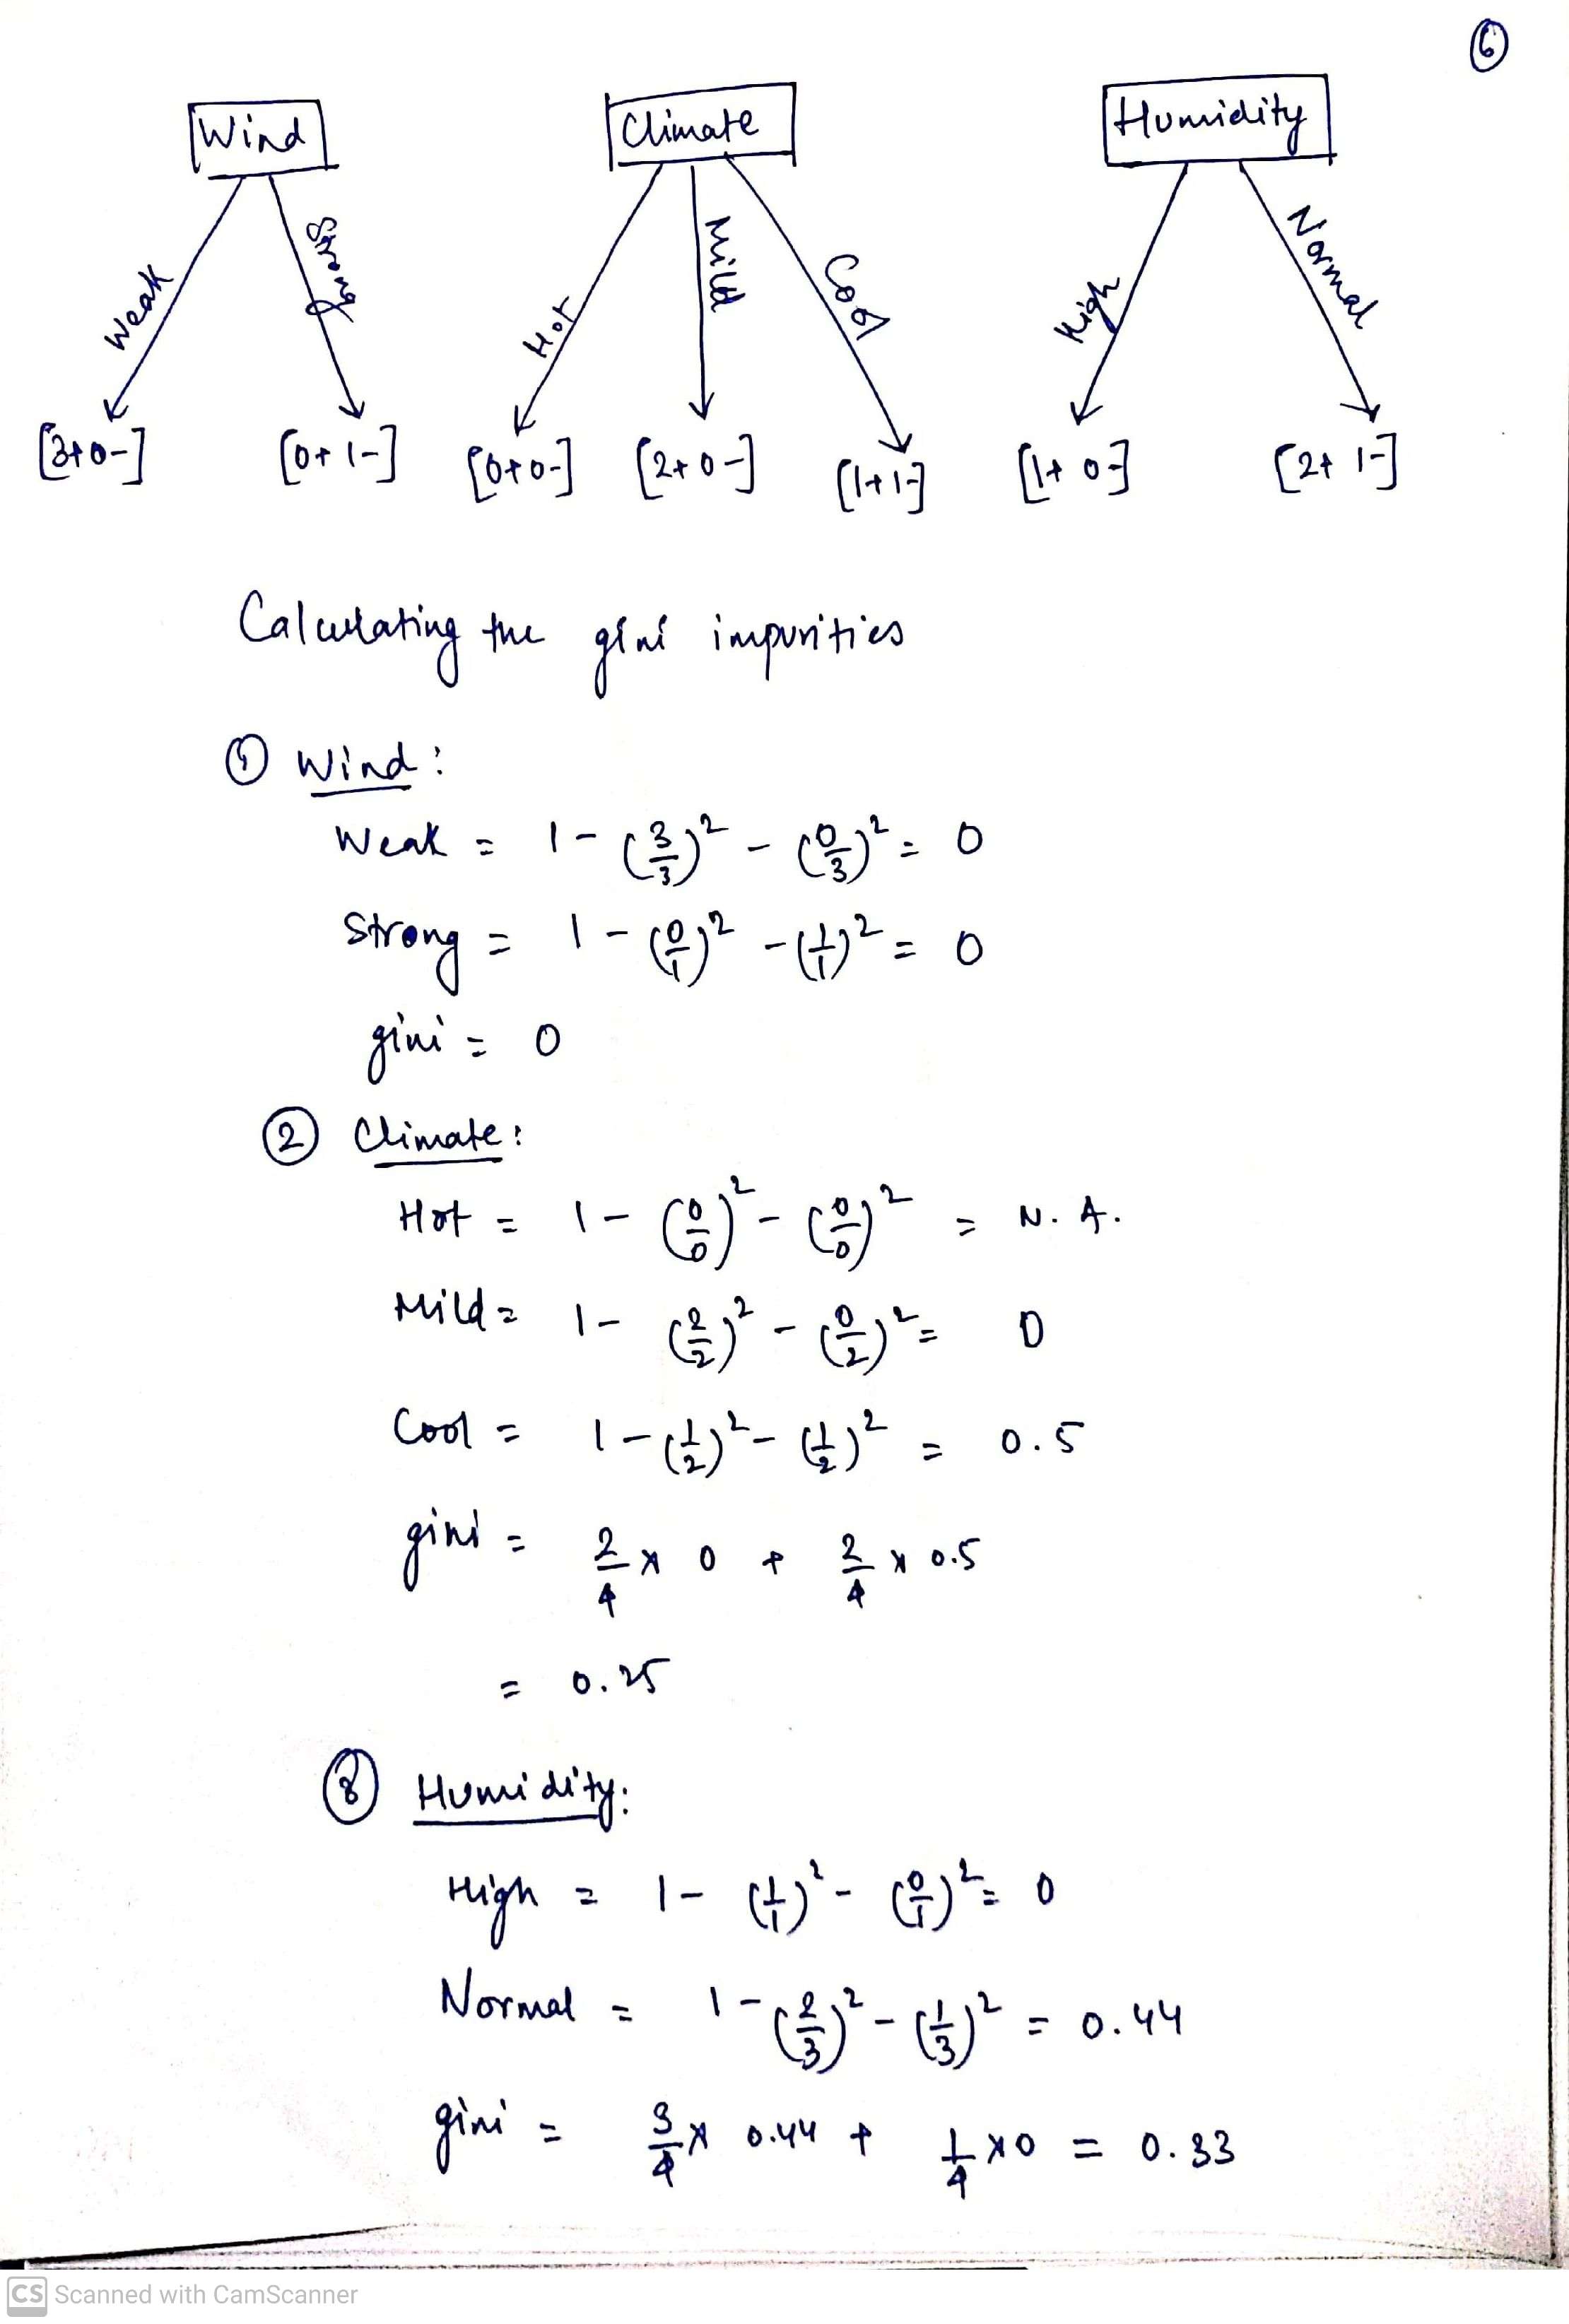 6
Wind Climate Humidity
Weak Strong Hot Mild Cool High Normal
[3+0-] [0+ 1-] [0+0-] [2+0-] [1+1-] [1+ 0-] [2+ 1-]
Calculating the gini impurities
① Wind:
Weak = 1 - (3/3)² - (0/3)² = 0
Strong = 1 - (0/1)² - (1/1)² = 0
gini = 0
② Climate:
Hot = 1 - (0/0)² - (0/0)² = N.A.
Mild = 1 - (2/2)² - (0/2)² = 0
Cool = 1 - (1/2)² - (1/2)² = 0.5
gini = 2/4 × 0 + 2/4 × 0.5
= 0.25
③ Humidity:
High = 1 - (1/1)² - (0/1)² = 0
Normal = 1 - (2/3)² - (1/3)² = 0.44
gini = 3/4 × 0.44 + 1/4 × 0 = 0.33
CS Scanned with CamScanner